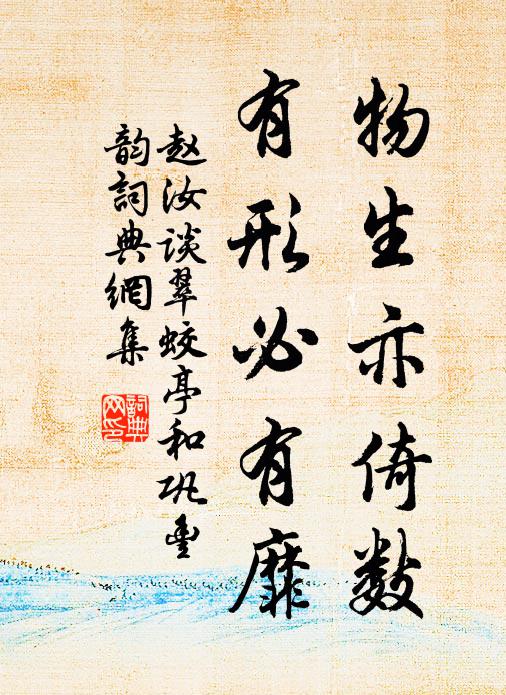 物生亦倚数
有形必有靡
赵汝谈翠蛟亭和巩豐
韵詞典網集
詞典
网印